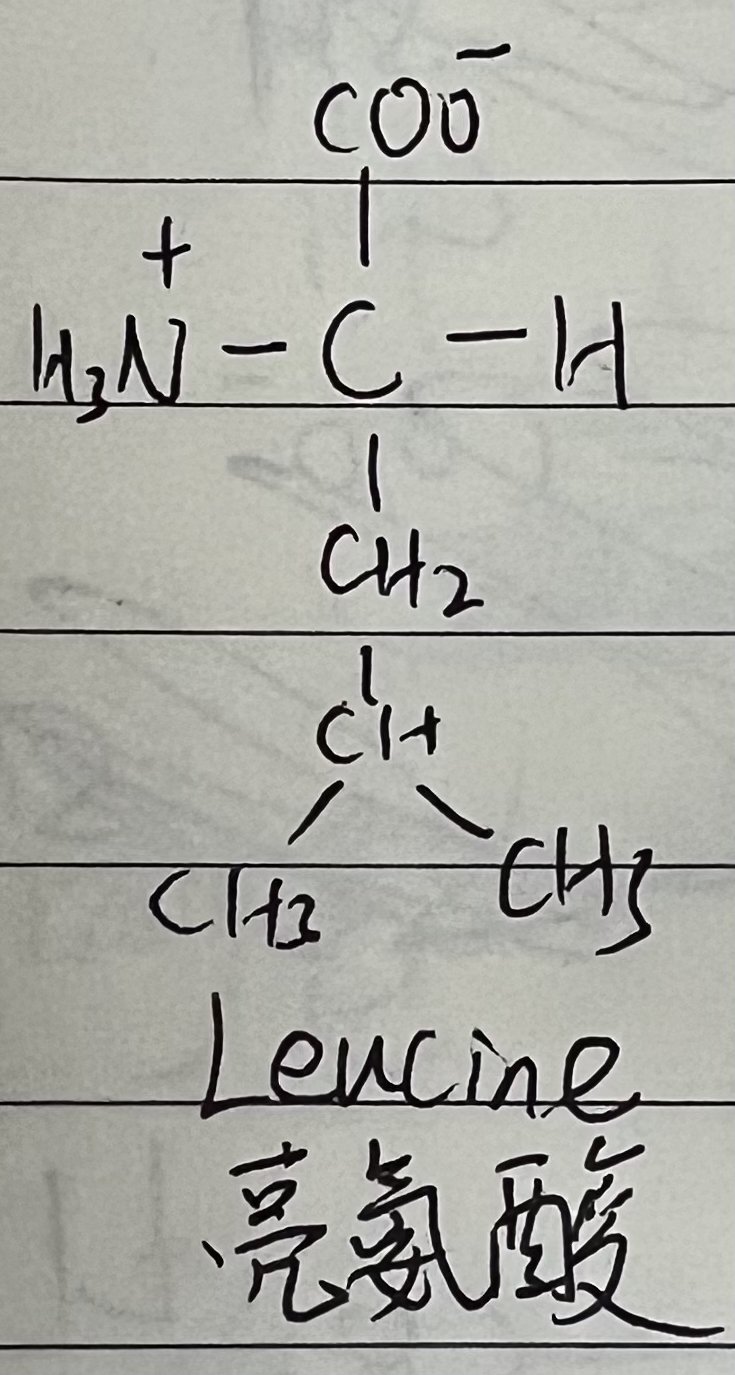 COO⁻
H₃N⁺ – C – H
CH₂
CH
CH₃ CH₃
Leucine
亮氨酸